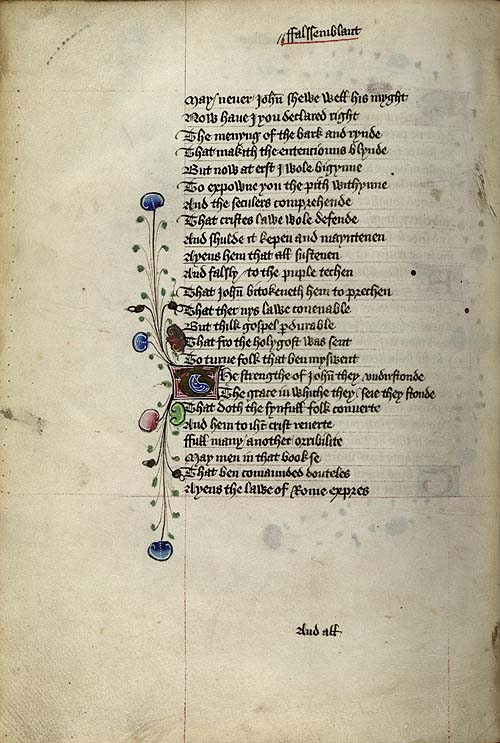 ffalssemblant
May neuer John shewe well his myght
Now haue I you declared right
The menyng of the bark and rynde
That makith the entenciouns blynde
But now at erst I wole bigynne
To expowne you the pith withynne
And the seculers comprehende
That cristes lawe wole defende
And shulde it kepen and mayntenen
Ayens hem that all sustenen
And falsly to the puple techen
That John bitokeneth hem to prechen
That ther nys lawe couenable
But thilk gospel pdurable
That fro the holygost was sent
To turne folk that ben myswent
The strengthe of John they vndirstonde
The grace in whiche they seie they stonde
That doth the synfull folk conuerte
And hem to ihc crist reuerte
ffull many another orribilite
May men in that booke se
That ben comaunded douteles
Ayens the lawe of Rome expres
And all